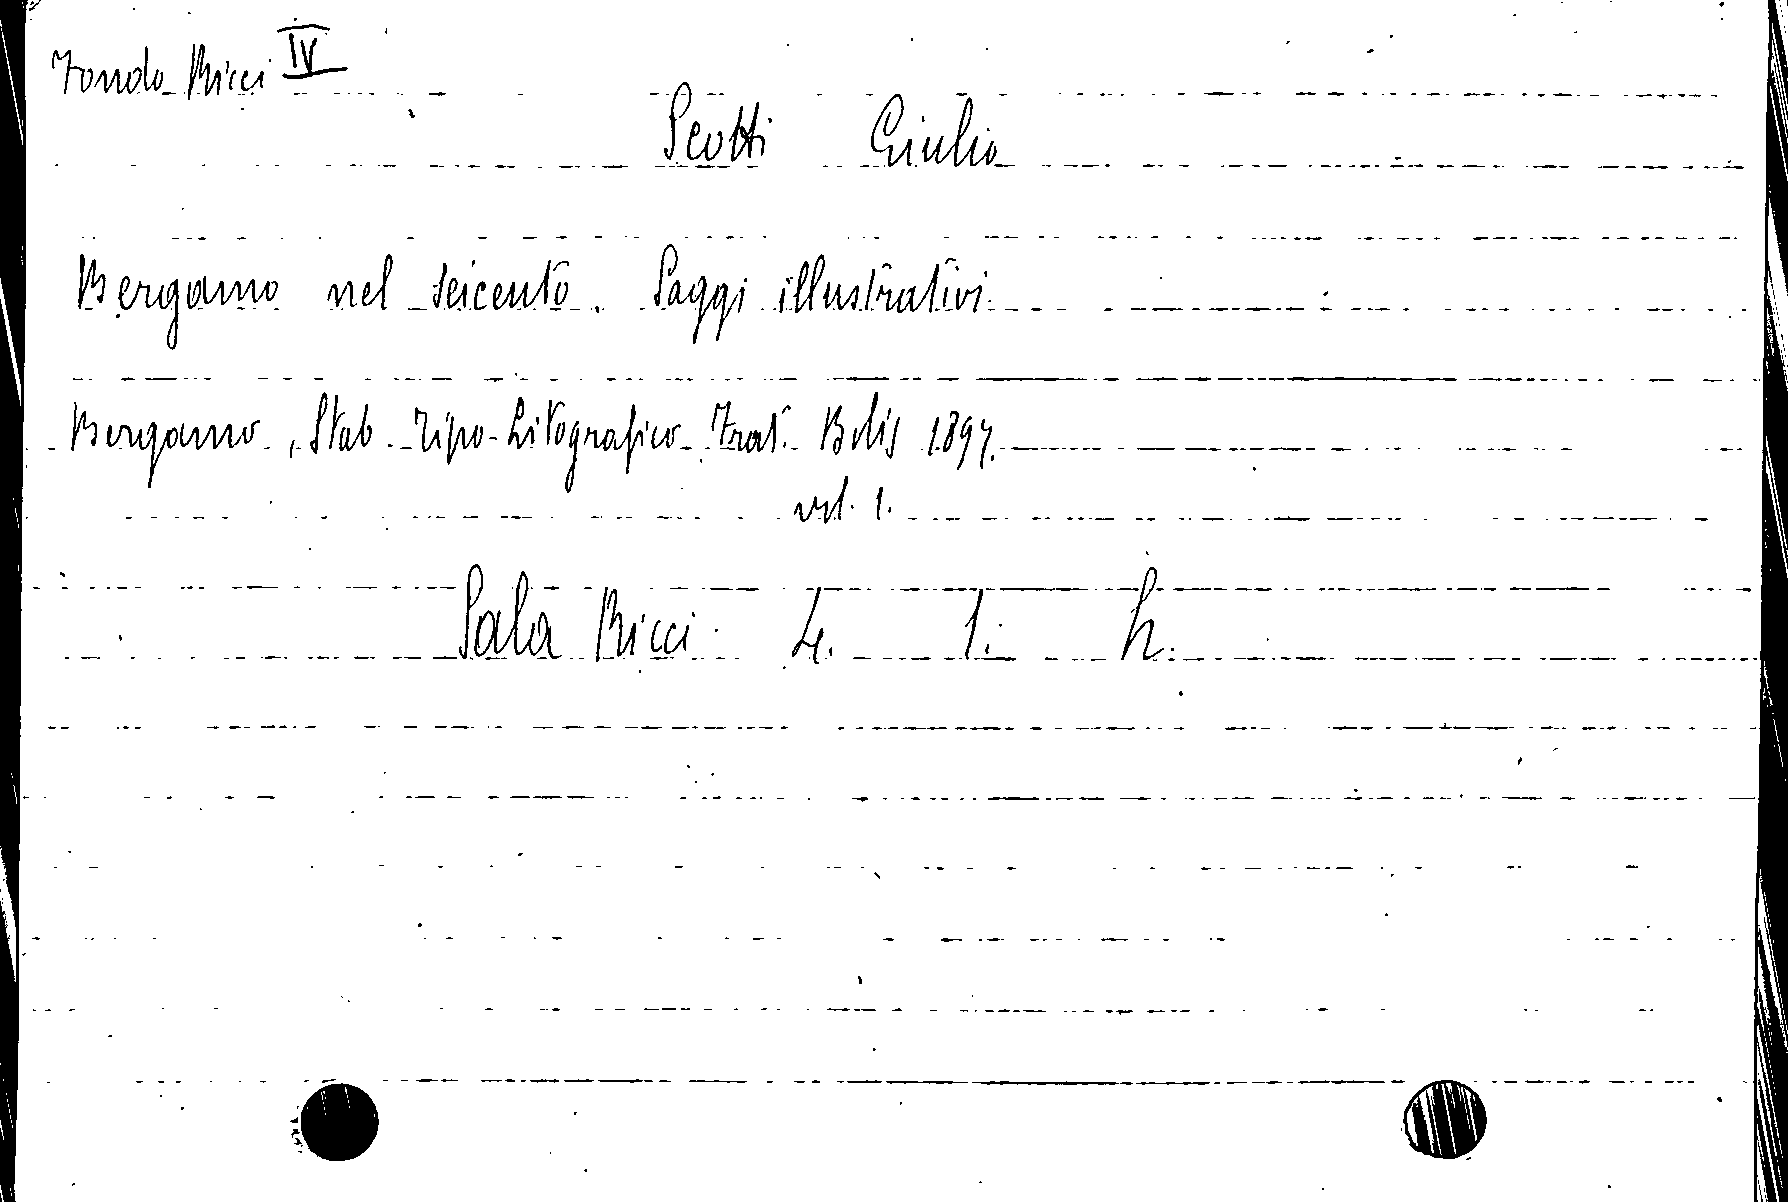 Fondo Ricci IV
Scotti Giulio
Bergamo nel seicento. Saggi illustrativi.
Bergamo, Stab. Tipo-Litografico Frat. Bolis 1897.
vol. 1.
Sala Ricci 4. 1. h.